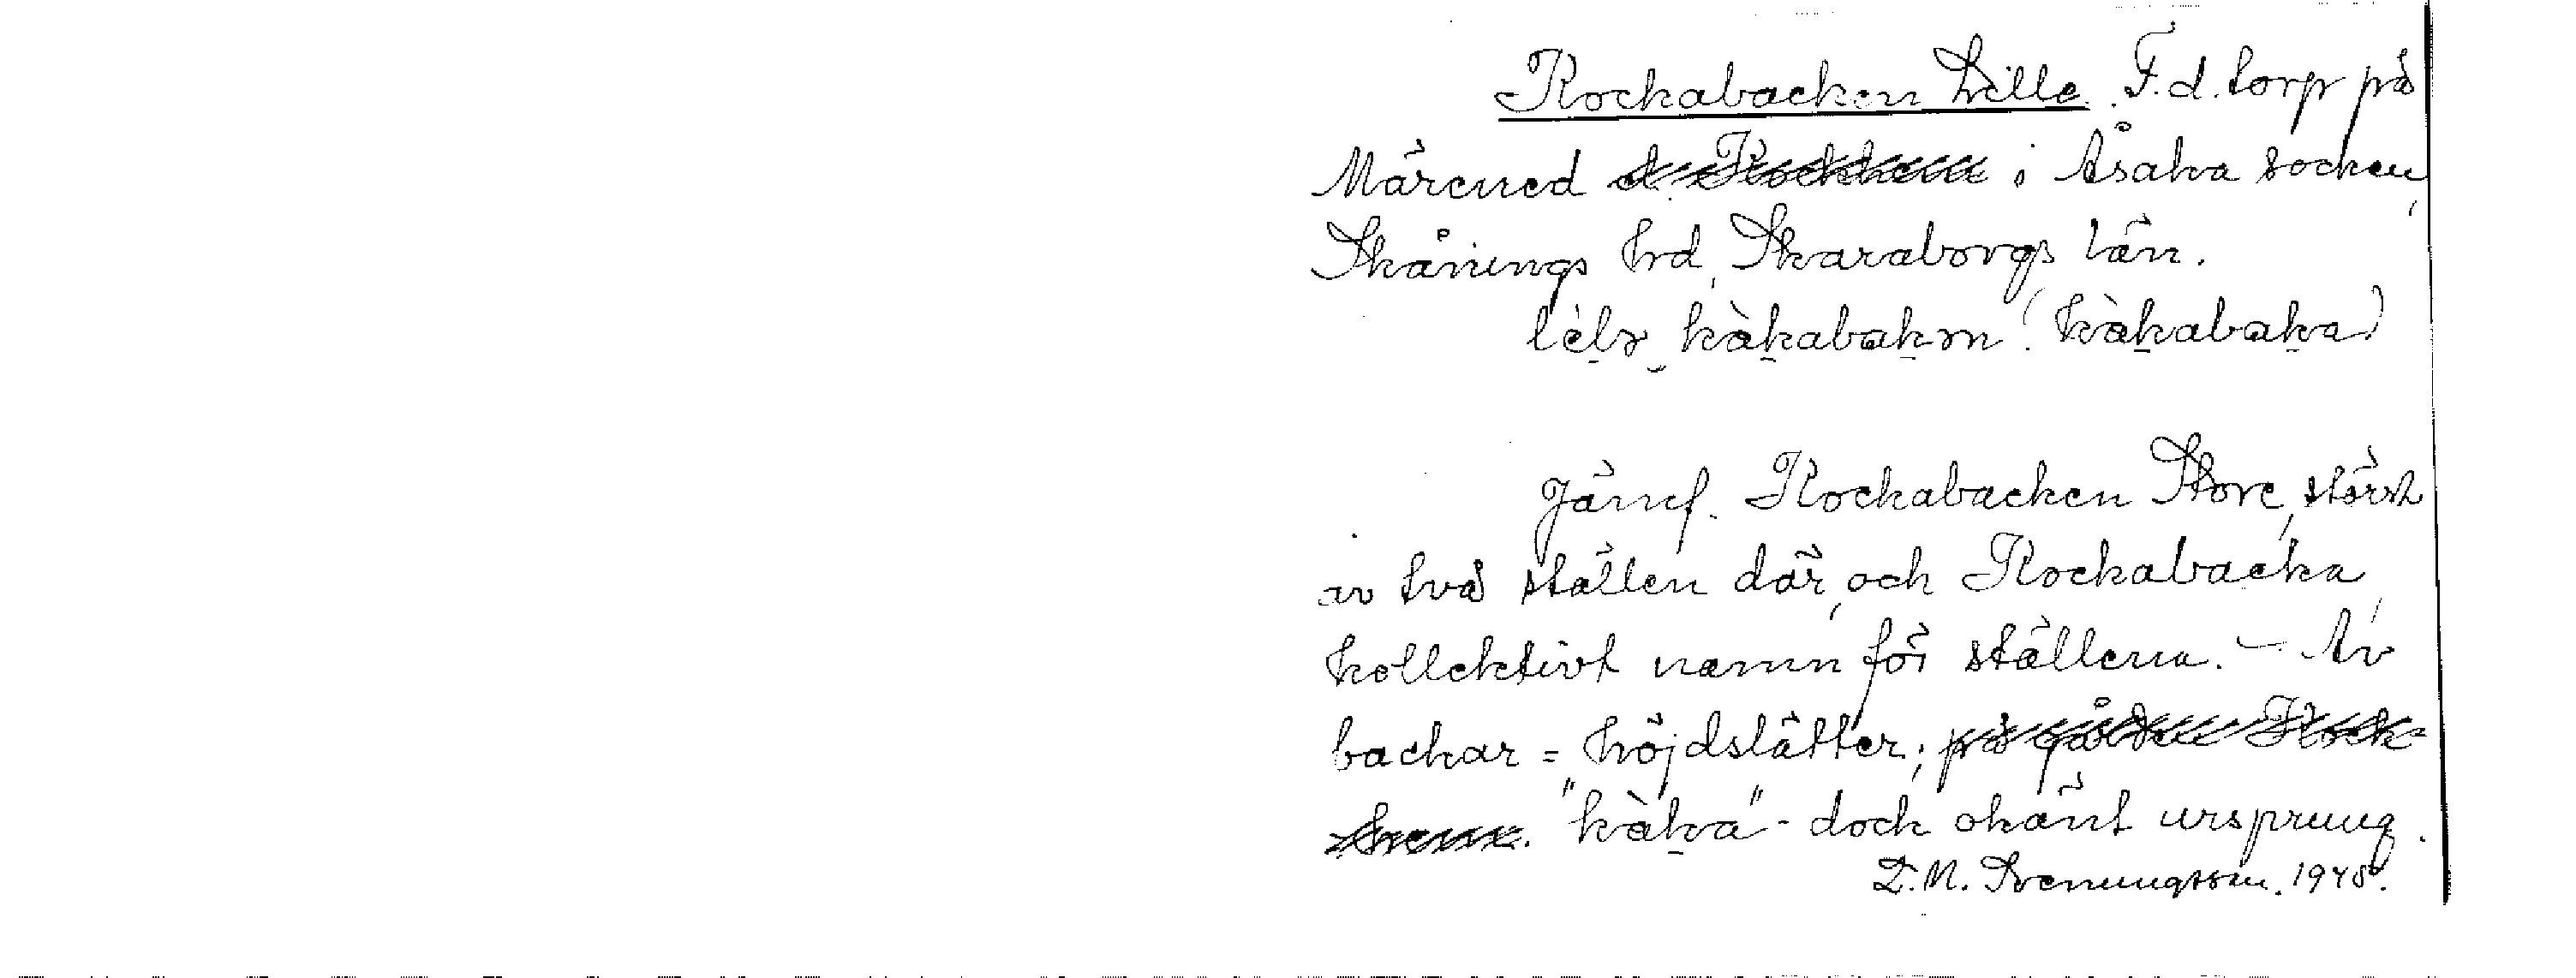 Kockabacken Lille. F.d. torp på
Märened i Åsaka socken,
Skånings hd, Skaraborgs län.
lèlə kàkabakən (kàkabaka)
Jämf. Kockabacken Store, störst
av två ställen där, och Kockabacka,
kollektivt namn för ställena. – Av
backar = höjdslätter; på gården Kock-
"kàka" - dock okänt ursprung.
D.N. Svenungsson. 1948.